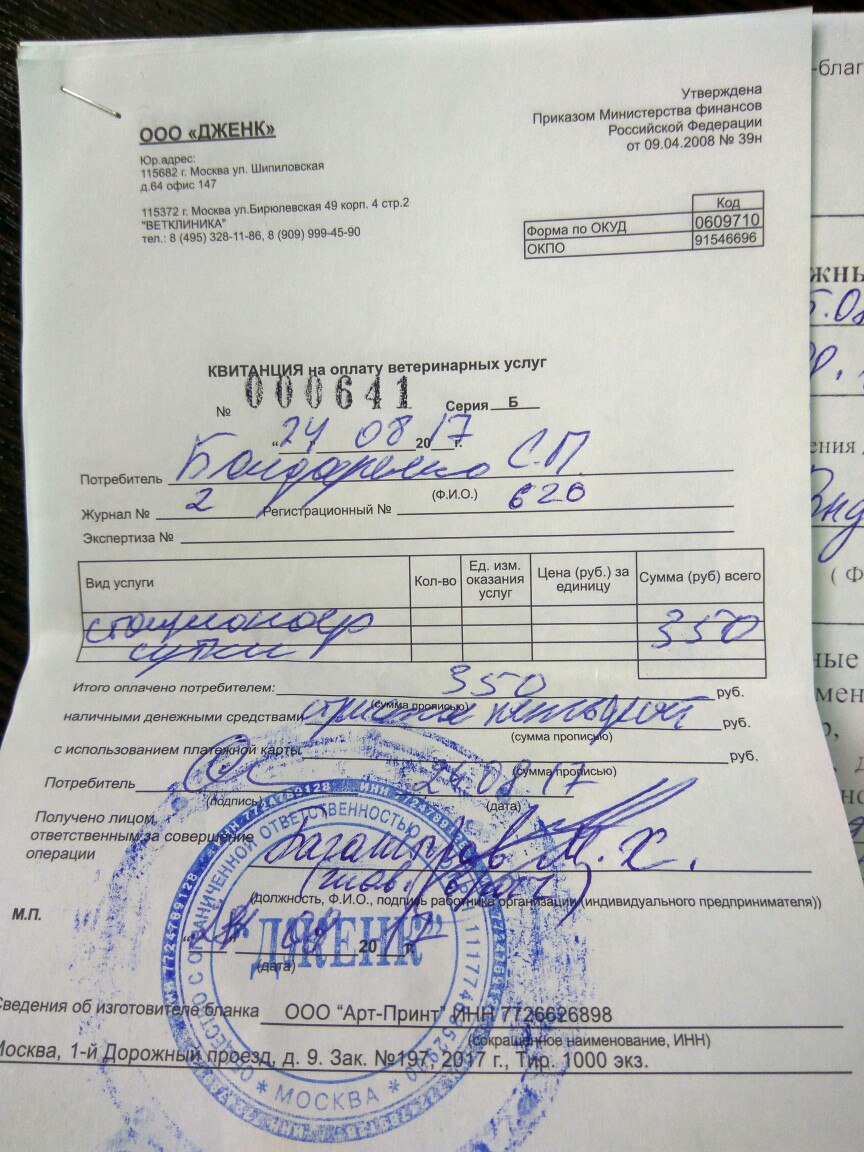 ООО «ДЖЕНК»
Юр.адрес:
115682 г. Москва ул. Шипиловская
д.64 офис 147
115372 г. Москва ул.Бирюлевская 49 корп. 4 стр.2
"ВЕТКЛИНИКА"
тел.: 8 (495) 328-11-86, 8 (909) 999-45-90
Утверждена
Приказом Министерства финансов
Российской Федерации
от 09.04.2008 № 39н
Код
Форма по ОКУД 0609710
ОКПО 91546696
КВИТАНЦИЯ на оплату ветеринарных услуг
№ 000641 Серия Б
"24" 08 2017 г.
Потребитель Бондаренко С.П.
(Ф.И.О.)
Журнал № 2 Регистрационный № 620
Экспертиза №
Вид услуги Кол-во Ед. изм. оказания услуг Цена (руб.) за единицу Сумма (руб) всего
стационар 350
сутки
Итого оплачено потребителем: 350 руб.
(сумма прописью)
наличными денежными средствами триста пятьдесят руб.
(сумма прописью)
с использованием платежной карты руб.
(сумма прописью)
Потребитель 24.08.17
(подпись) (дата)
Получено лицом,
ответственным за совершение
операции
М.Х.
(должность, Ф.И.О., подпись работника организации (индивидуального предпринимателя))
М.П.
"24" 08 2017 г.
(дата)
Сведения об изготовителе бланка ООО "Арт-Принт" ИНН 7726626898
(сокращенное наименование, ИНН)
Москва, 1-й Дорожный проезд, д. 9. Зак. №197, 2017 г., Тир. 1000 экз.
ОБЩЕСТВО С ОГРАНИЧЕННОЙ ОТВЕТСТВЕННОСТЬЮ
ИНН 7724789128
"ДЖЕНК"
* МОСКВА *
-благ